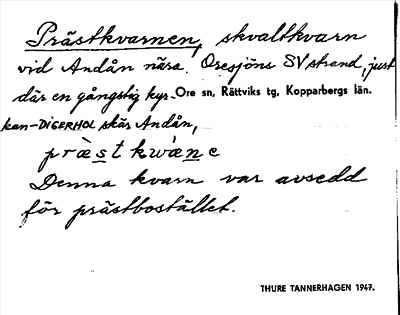 Prästkvarnen, skvaltkvarn
vid Andån nära Oresjöns SV strand, just
där en gångstig kyr- Ore sn, Rättviks tg, Kopparbergs län.
kan-DIGERHOL skär Andån,
præ̀stkwæ̀ne
Denna kvarn var avsedd
för prästbostället.
THURE TANNERHAGEN 1947.